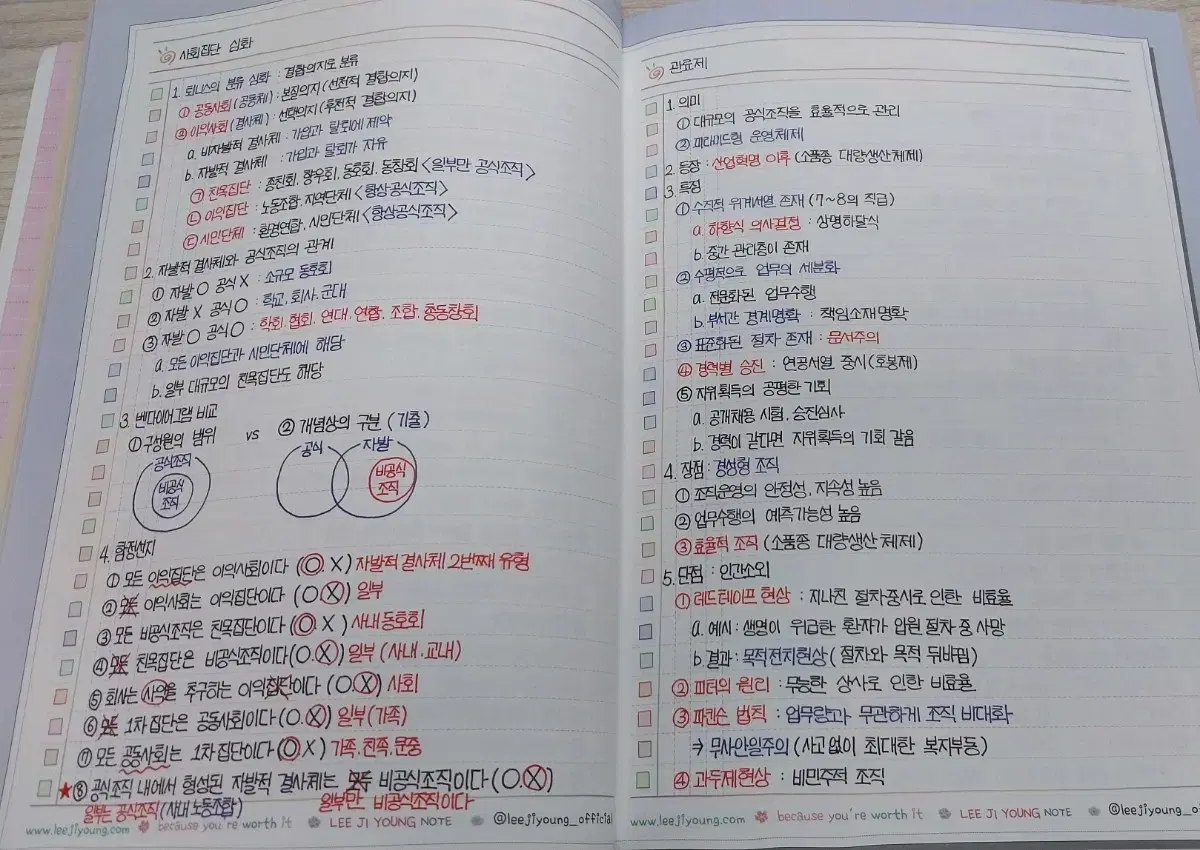 사회집단 심화
1. 퇴니스의 분류 심화 : 결합의지로 분류
① 공동사회(공동체) : 본질의지(선천적 결합의지)
② 이익사회(결사체) : 선택의지(후천적 결합의지)
a. 비자발적 결사체 : 가입과 탈퇴에 제약
b. 자발적 결사체 : 가입과 탈퇴가 자유
㉠ 친목집단 : 종친회, 향우회, 동호회, 동창회 <일부만 공식조직>
㉡ 이익집단 : 노동조합, 지역단체 <항상공식조직>
㉢ 시민단체 : 환경연합, 시민단체 <항상공식조직>
2. 자발적 결사체와 공식조직의 관계
① 자발 O 공식 X : 소규모 동호회
② 자발 X 공식 O : 학교, 회사, 군대
③ 자발 O 공식 O : 학회, 협회, 연대, 연합, 조합, 총동창회
a. 모든 이익집단과 시민단체에 해당
b. 일부 대규모의 친목집단도 해당
3. 벤다이어그램 비교
① 구성원의 범위 vs ② 개념상의 구분 (기출)
공식조직
비공식
조직
공식
자발
비공식
조직
4. 함정선지
① 모든 이익집단은 이익사회이다 (O X) 자발적 결사체 2번째 유형
② 모든 이익사회는 이익집단이다 (O X) 일부
③ 모든 비공식조직은 친목집단이다 (O X) 사내동호회
④ 모든 친목집단은 비공식조직이다(O.X) 일부 (사내.교내)
⑤ 회사는 사익을 추구하는 이익집단이다 (O X) 사회
⑥ 모든 1차 집단은 공동사회이다 (O.X) 일부(가족)
⑦ 모든 공동사회는 1차 집단이다 (O X) 가족, 친족, 문중
★⑧ 공식조직 내에서 형성된 자발적 결사체는 모두 비공식조직이다 (O X)
일부는 공식조직(사내 노동조합) 일부만 비공식조직이다
www.leejiyoung.com because you're worth it LEE JI YOUNG NOTE @leejiyoung_official
관료제
1. 의미
① 대규모의 공식조직을 효율적으로 관리
② 피라미드형 운영체제
2. 등장 : 산업혁명 이후 (소품종 대량생산체제)
3. 특징
① 수직적 위계서열 존재 (7~8의 직급)
a. 하향식 의사결정 : 상명하달식
b. 중간 관리층이 존재
② 수평적으로 업무의 세분화
a. 전문화된 업무수행
b. 부서간 경계명확 : 책임소재명확
③ 표준화된 절차 존재 : 문서주의
④ 경력별 승진 : 연공서열 중시(호봉제)
⑤ 지위획득의 공평한 기회
a. 공개채용 시험, 승진심사
b. 경력이 같다면 지위획득의 기회 같음
4. 장점 : 경성형 조직
① 조직운영의 안정성, 지속성 높음
② 업무수행의 예측가능성 높음
③ 효율적 조직 (소품종 대량생산 체제)
5. 단점 : 인간소외
① 레드테이프 현상 : 지나친 절차중시로 인한 비효율
a. 예시 : 생명이 위급한 환자가 입원 절차 중 사망
b. 결과 : 목적전치현상 ( 절차와 목적 뒤바뀜)
② 피터의 원리 : 무능한 상사로 인한 비효율
③ 파킨슨 법칙 : 업무량과 무관하게 조직 비대화
⇒ 무사안일주의 (사고 없이 최대한 복지부동)
④ 과두제현상 : 비민주적 조직
www.leejiyoung.com because you're worth it LEE JI YOUNG NOTE @leejiyoung_o